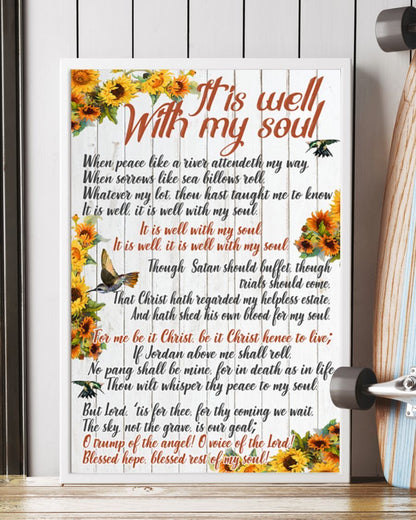 It is well
With my soul
When peace like a river attendeth my way,
When sorrows like sea billows roll,
Whatever my lot, thou hast taught me to know
It is well, it is well with my soul.
It is well with my soul,
It is well, it is well with my soul
Though Satan should buffet, though
trials should come,
That Christ hath regarded my helpless estate,
And hath shed his own blood for my soul.
For me be it Christ, be it Christ hence to live;
If Jordan above me shall roll,
No pang shall be mine, for in death as in life
Thou wilt whisper thy peace to my soul.
But Lord, 'tis for thee, for thy coming we wait,
The sky, not the grave, is our goal;
O trump of the angel! O voice of the Lord!
Blessed hope, blessed rest of my soul!